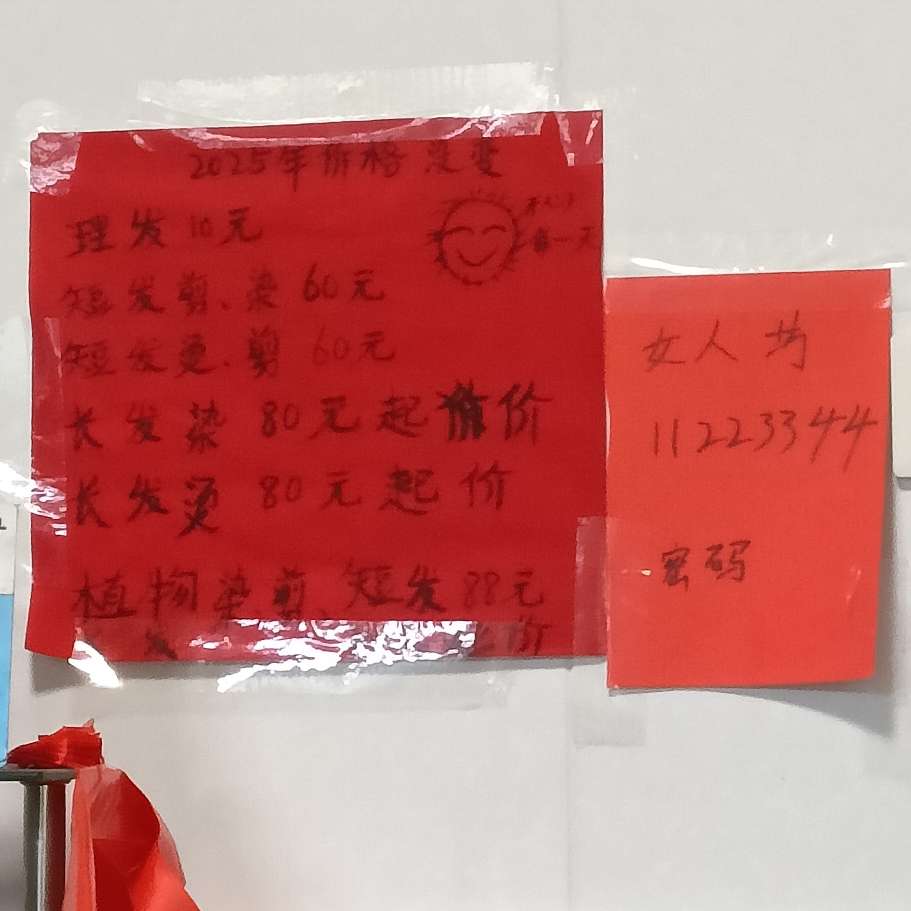 2025年价格
理发 10元
短发剪、染 60元
短发烫、剪 60元
长发染 80元起价
长发烫 80元起价
植物染剪、短发 88元
发 价
一元
女人为
11223344
密码